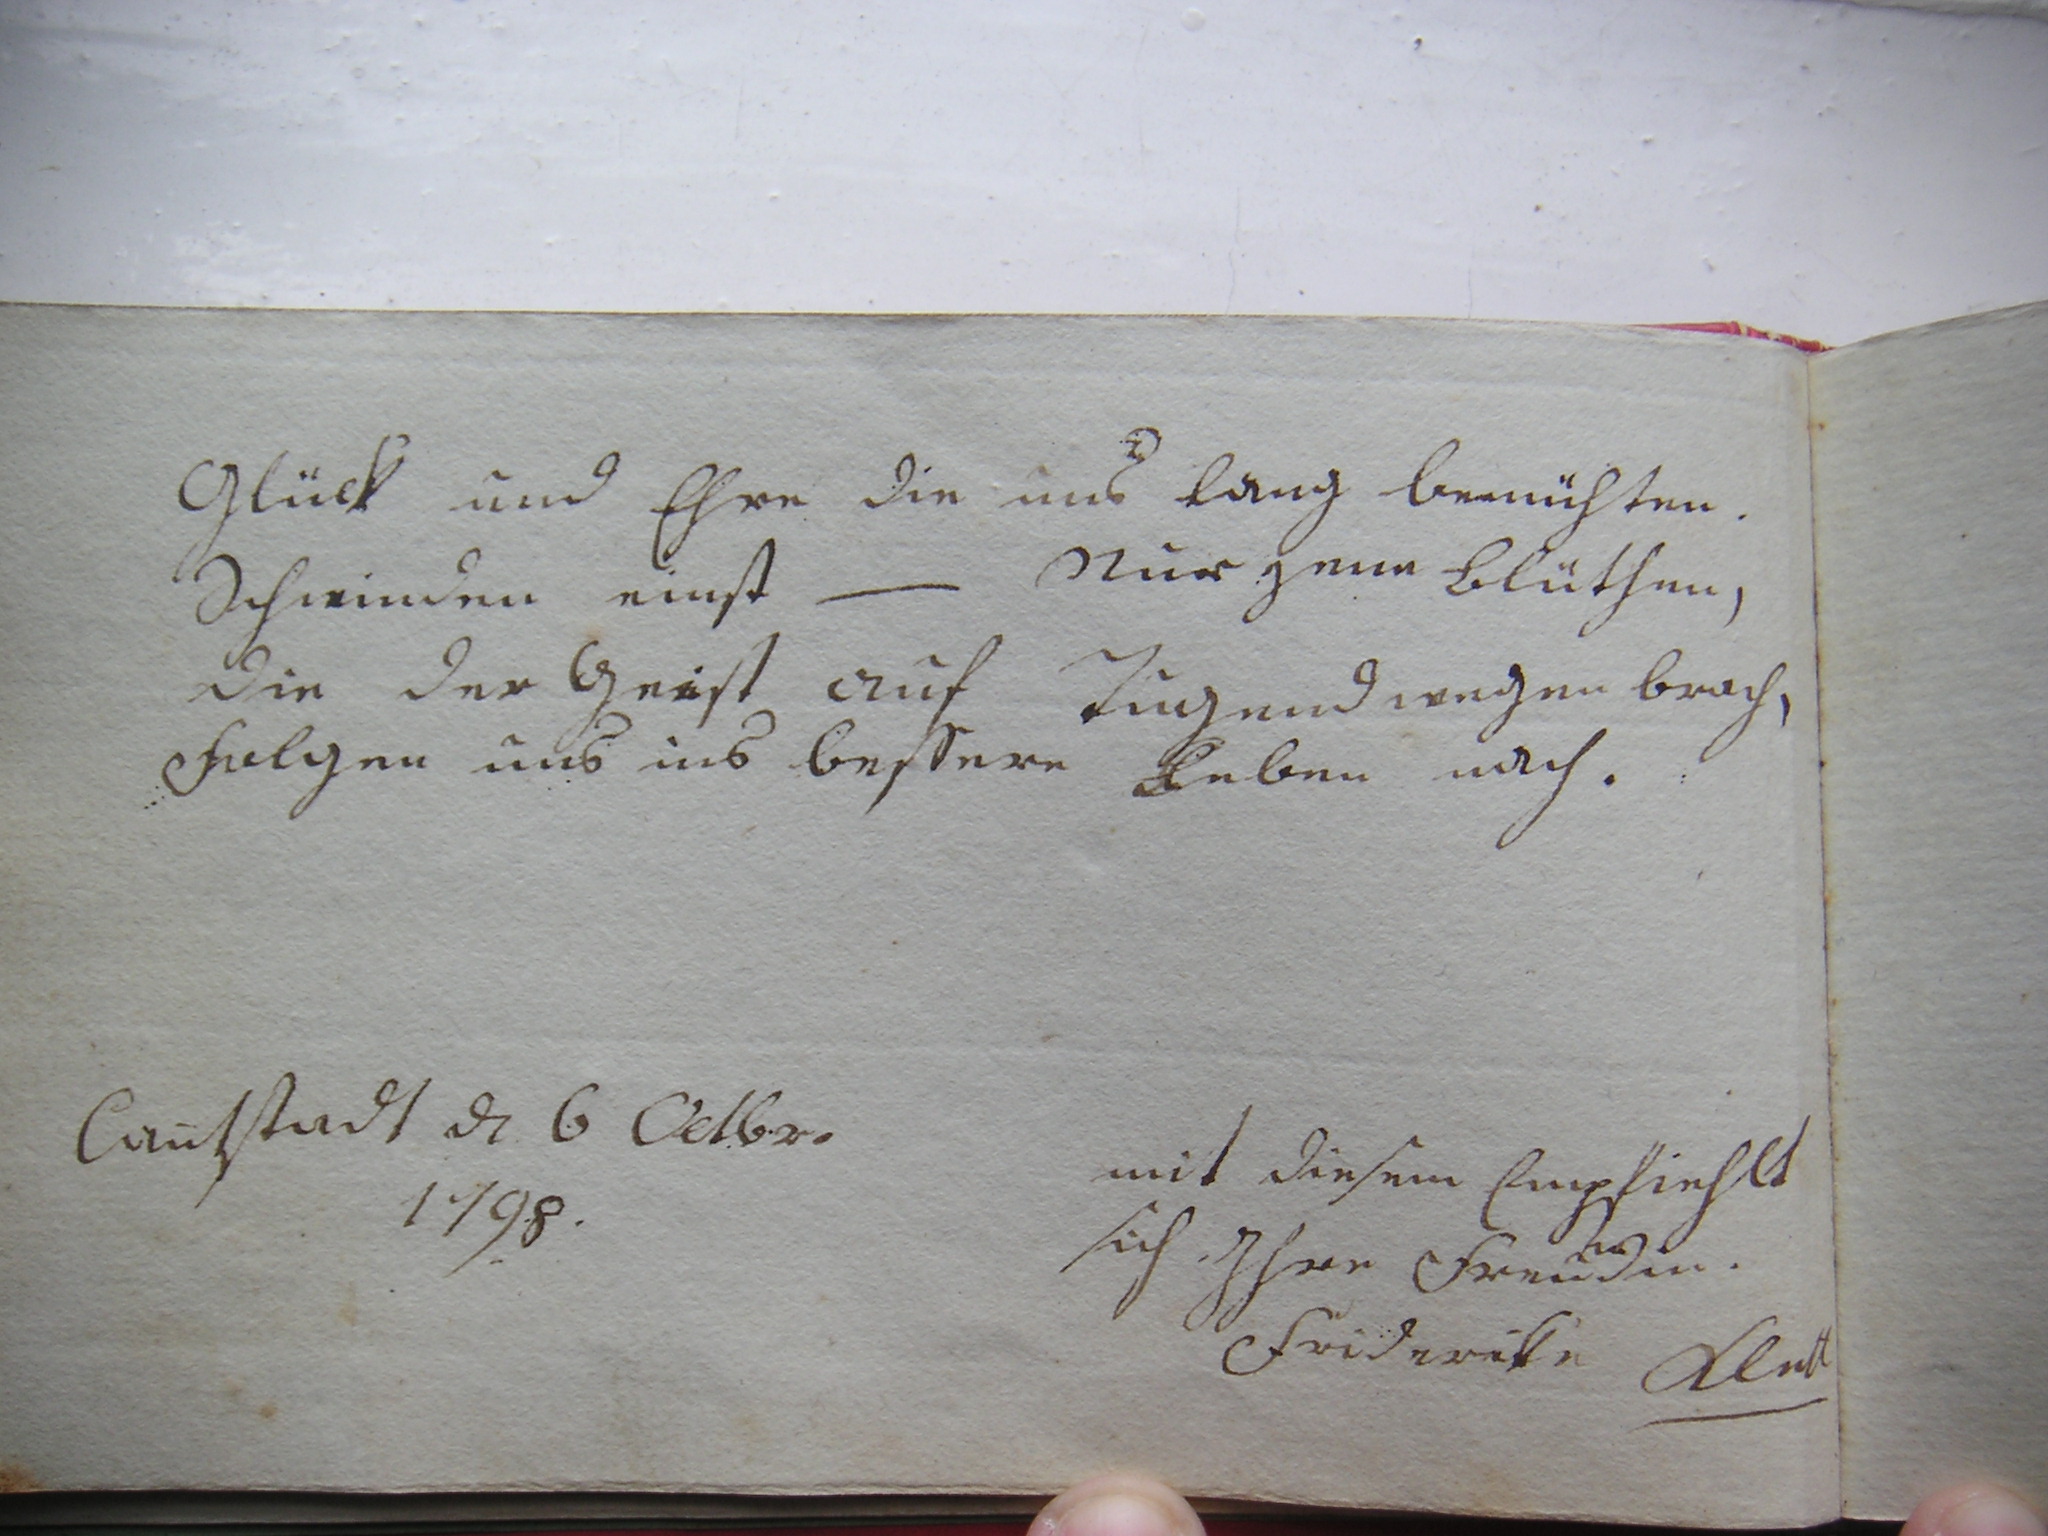 Glück und Ehre die uns lang bemühten.
Schwinden einst — Nur jene Blüthen,
die der Geist auf Tugendwegen brach,
Folgen uns ins bessere Leben nach.
Cantstadt d 6 Octbr.
1798.
mit diesem Empfiehlt
sich Ihre Freundin.
Friderikke Klett